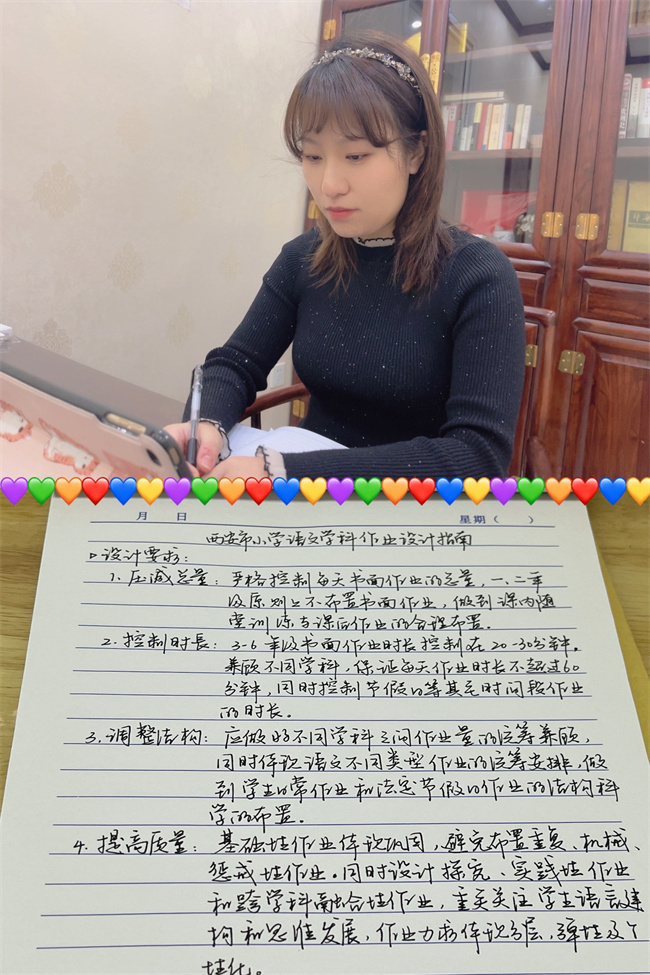 月 日 星期（ ）
西安市小学语文学科作业设计指南
▷设计要求：
1. 压减总量：严格控制每天书面作业的总量，一、二年
级原则上不布置书面作业，做到课内随
堂训练与课后作业的合理布置。
2. 控制时长：3-6年级书面作业时长控制在20-30分钟。
兼顾不同学科，保证每天作业时长不超过60
分钟，同时控制节假日等其它时间段作业
的时长。
3. 调整结构：应做好不同学科之间作业量的统筹兼顾，
同时体现语文不同类型作业的统筹安排，做
到学生日常作业和法定节假日作业的结构科
学的布置。
4. 提高质量：基础性作业体现巩固，避免布置重复、机械、
惩戒性作业。同时设计探究、实践性作业
和跨学科融合性作业，重点关注学生语言建
构和思维发展，作业力求体现分层，弹性及个
性化。